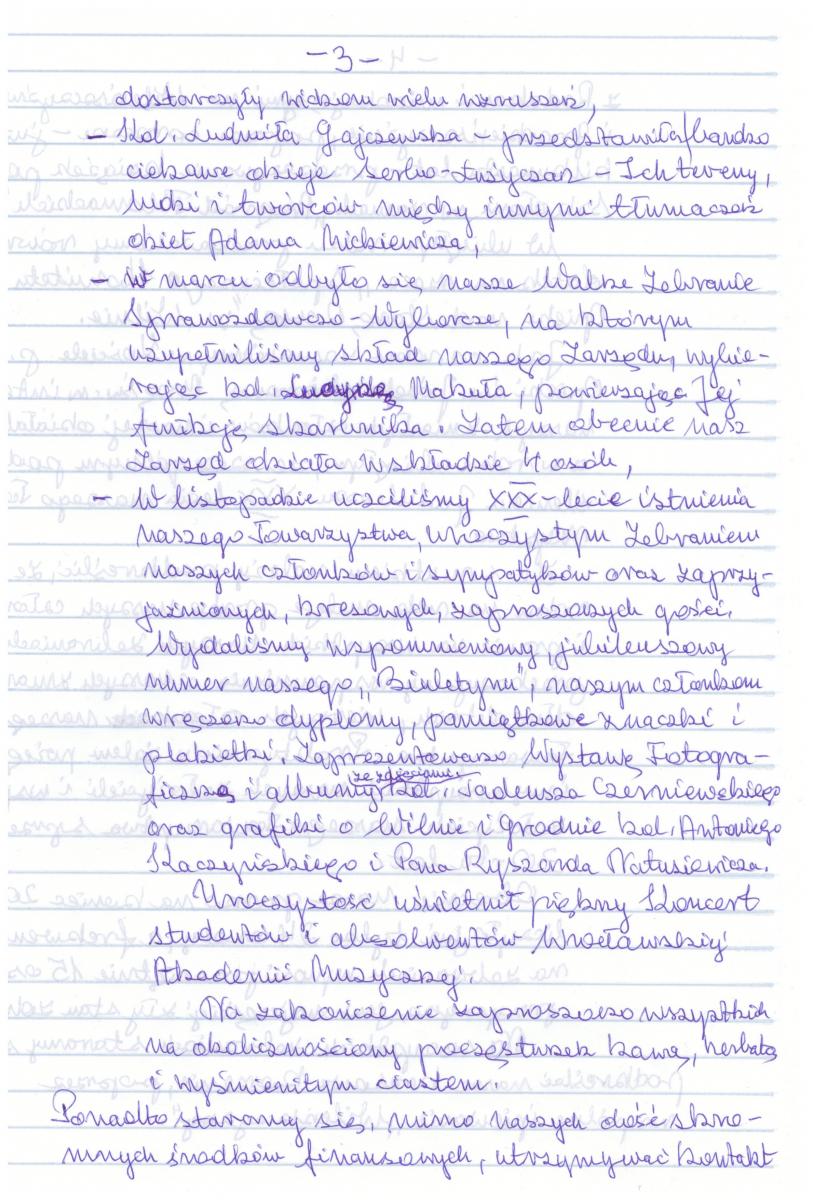 - 3 -
dostarczyły widzom wielu wzruszeń,
- Kol. Ludmiła Gajczewska - przedstawiła bardzo
ciekawe dzieje Serbo-Łużyczan -
ludzi i twórców między innymi tłumaczeń
dzieł Adama Mickiewicza,
- W marcu odbyło się nasze Walne Zebranie
Sprawozdawczo-Wyborcze, na którym
uzupełniliśmy skład naszego Zarządu, wybie-
rając kol. Makuła, powierzając Jej
funkcję skarbnika. Zatem obecnie nasz
Zarząd działa w składzie 4 osób,
- W listopadzie uczciliśmy XXX-lecie istnienia
naszego Towarzystwa, uroczystym Zebraniem
naszych członków i sympatyków oraz zaprzy-
jaźnionych, kresowych, zaproszonych gości.
Wydaliśmy wspomnieniowy, jubileuszowy
numer naszego „Biuletynu", naszym członkom
wręczono dyplomy, pamiątkowe znaczki i
plakietki. Zaprezentowano Wystawę Fotogra-
ficzną i albumy ze zdjęciami kol. Tadeusza Czerniewskiego
oraz grafiki o Wilnie i Grodnie kol. Antoniego
Kaczyńskiego i Pana Ryszarda Natusiewicza.
Uroczystość uświetnił piękny Koncert
studentów i absolwentów Wrocławskiej
Akademii Muzycznej.
Na zakończenie zaproszono wszystkich
na okolicznościowy poczęstunek kawą, herbatą
i wyśmienitym ciastem.
Ponadto staramy się, mimo naszych dość skro-
mnych środków finansowych, utrzymywać kontakt